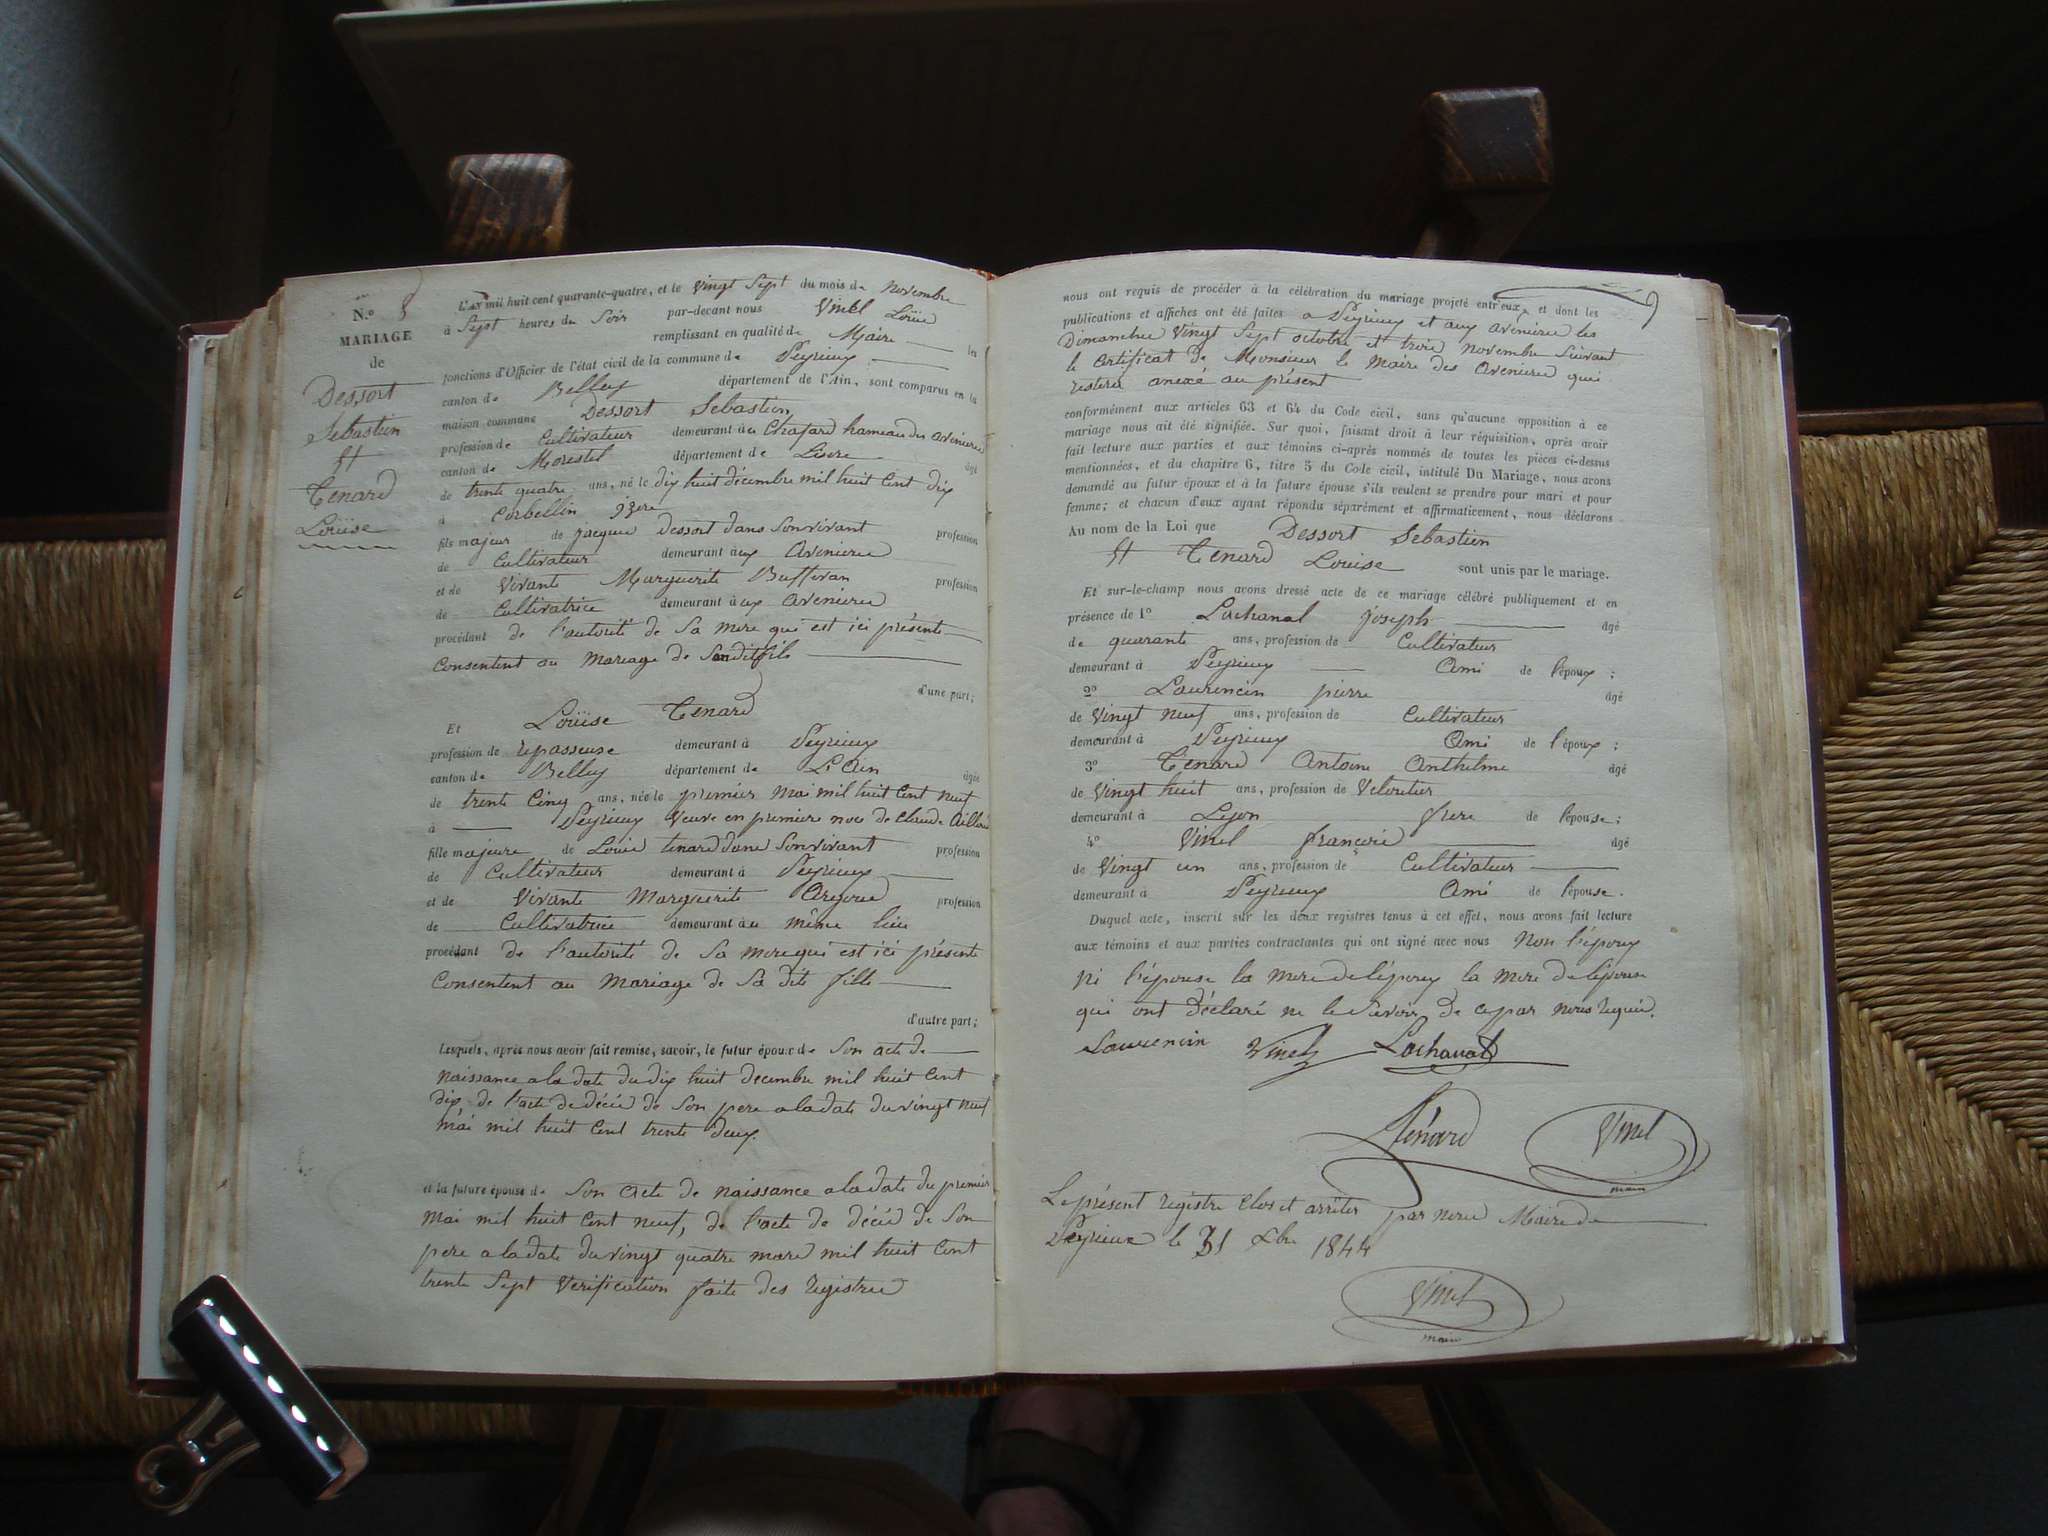 N.º 8
MARIAGE
de
Dessort
Sebastien
et
Tenard
Louise
L'an mil huit cent quarante-quatre, et le vingt Sept du mois de Novembre
à Sept heures du Soir par-devant nous Vinel Louis
remplissant en qualité de Maire les
fonctions d'Officier de l'état civil de la commune de Peyrieux
canton de Belley département de l'Ain, sont comparus en la
maison commune Dessort Sebastien
profession de Cultivateur demeurant au hameau des avenieres
canton de Morestel département de Lisere âgé
de trente quatre ans, né le dix huit décembre mil huit Cent dix
à Corbellin
fils majeur de jacques Dessort dans Sonvivant profession
de Cultivateur demeurant aux Avenieres
et de Vivante Marguerite profession
de Cultivatrice demeurant aux avenieres
procédant de l'autorité de Sa mere qui est ici présente
Consentent au mariage de Sondit fils
d'une part;
Et Louise Tenard
profession de repasseuse demeurant à Peyrieux
canton de Belley département de L'Ain âgée
de trente Cinq ans, née le premier mai mil huit Cent neuf
à Peyrieux Veuve en premiere noce de Claude
fille majeure de Louis tenard dans Sonvivant profession
de Cultivateur demeurant à Peyrieux
et de Vivante Marguerite profession
de Cultivatrice demeurant au même lieu
procédant de l'autorité de Sa mere qui est ici présente
Consentent au mariage de Sa dite fille
d'autre part;
Lesquels, après nous avoir fait remise, savoir, le futur époux de Son acte de
naissance a la date du dix huit decembre mil huit Cent
dix de l'acte de décès de Son pere a la date du vingt neuf
mai mil huit Cent trente deux.
et la future épouse de Son acte de naissance a la date du premier
mai mil huit Cent neuf, de l'acte de décès de Son
pere a la date du vingt quatre mars mil huit Cent
trente Sept Verification faite des registres
9
nous ont requis de procéder à la célébration du mariage projeté entr'eux, et dont les
publications et affiches ont été faites a Peyrieux et aux avenieres les
Dimanches Vingt Sept octobre et trois Novembre Suivant
le Certificat de Monsieur le Maire des avenieres qui
restera anexé au présent
conformément aux articles 63 et 64 du Code civil, sans qu'aucune opposition à ce
mariage nous ait été signifiée. Sur quoi, faisant droit à leur réquisition, après avoir
fait lecture aux parties et aux témoins ci-après nommés de toutes les pièces ci-dessus
mentionnées, et du chapitre 6, titre 5 du Code civil, intitulé Du Mariage, nous avons
demandé au futur époux et à la future épouse s'ils veulent se prendre pour mari et pour
femme; et chacun d'eux ayant répondu séparément et affirmativement, nous déclarons
Au nom de la Loi que Dessort Sebastien
et Tenard Louise sont unis par le mariage.
Et sur-le-champ nous avons dressé acte de ce mariage célébré publiquement et en
présence de 1º Lachanal joseph âgé
de quarante ans, profession de Cultivateur
demeurant à Peyrieux Ami de l'époux;
2º Laurencin pierre âgé
de Vingt neuf ans, profession de Cultivateur
demeurant à Peyrieux Ami de l'époux;
3º Tenard Antoine Anthelme âgé
de Vingt huit ans, profession de Veloutier
demeurant à Lyon frere de l'épouse;
4º Vinel françois âgé
de Vingt un ans, profession de Cultivateur
demeurant à Peyrieux Ami de l'épouse.
Duquel acte, inscrit sur les deux registres tenus à cet effet, nous avons fait lecture
aux témoins et aux parties contractantes qui ont signé avec nous Non l'époux
ni l'épouse la mere de l'époux la mere de l'épouse
qui ont déclaré ne le Savoir de ce par nous requis.
Laurencin Vinel Lachanal
Ténard Vinel
maire
Le présent registre Clos et arrêter par nous Maire de
Peyrieux le 31 Xbre 1844
Vinel
maire